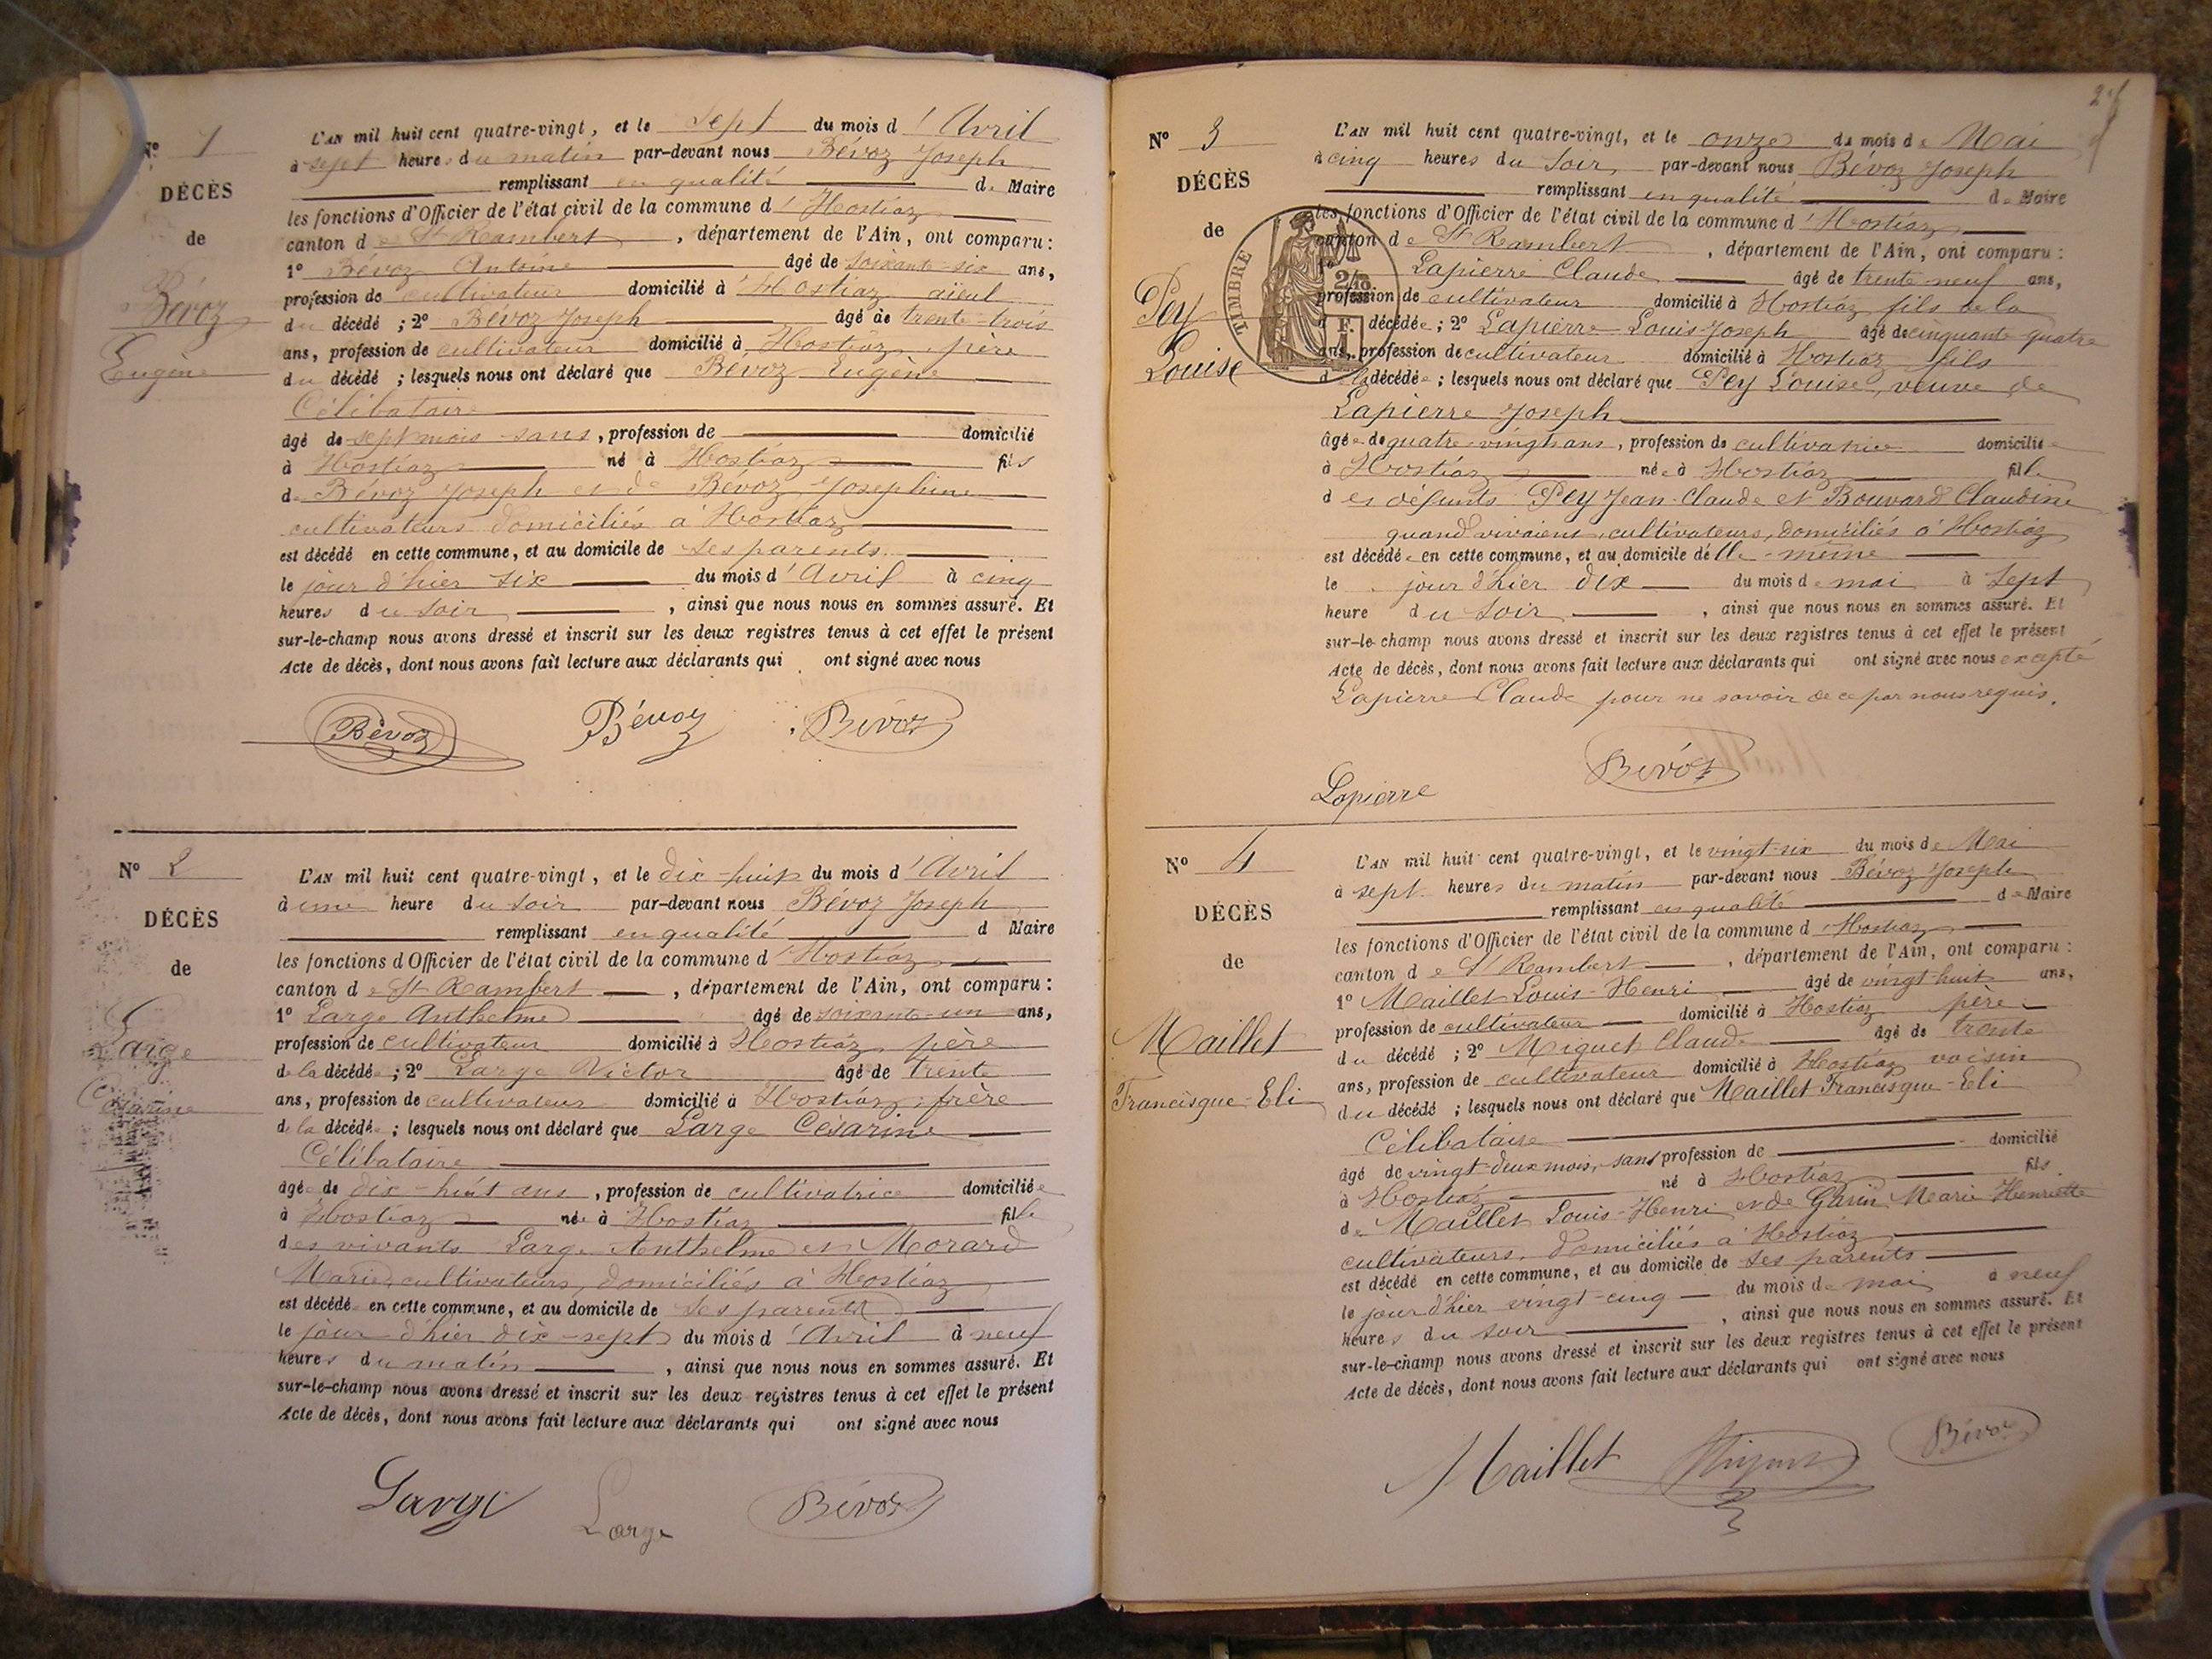 N° 1
DÉCÈS
de
Bévoz
Eugène
L'AN mil huit cent quatre-vingt, et le sept du mois d'Avril
à sept heures du matin par-devant nous Bévoz Joseph
remplissant en qualité de Maire
les fonctions d'Officier de l'état civil de la commune d'Hostiaz
canton de St Rambert, département de l'Ain, ont comparu:
1° Bévoz Antoine âgé de soixante-six ans,
profession de cultivateur domicilié à Hostiaz aïeul
du décédé ; 2° Bévoz Joseph âgé de trente-trois
ans, profession de cultivateur domicilié à Hostiaz, père
du décédé ; lesquels nous ont déclaré que Bévoz Eugène
Célibataire
âgé de sept mois sans, profession de domicilié
à Hostiaz né à Hostiaz fils
de Bévoz Joseph et de Bévoz Joséphine
cultivateurs domiciliés à Hostiaz
est décédé en cette commune, et au domicile de ses parents
le jour d'hier six du mois d'Avril à cinq
heures du soir, ainsi que nous nous en sommes assuré. Et
sur-le-champ nous avons dressé et inscrit sur les deux registres tenus à cet effet le présent
Acte de décès, dont nous avons fait lecture aux déclarants qui ont signé avec nous
Bévoz Bévoz Bévoz
N° 2
DÉCÈS
de
Large
Césarine
L'AN mil huit cent quatre-vingt, et le dix-huit du mois d'Avril
à une heure du soir par-devant nous Bévoz Joseph
remplissant en qualité d Maire
les fonctions d'Officier de l'état civil de la commune d'Hostiaz
canton de St Rambert, département de l'Ain, ont comparu:
1° Large Anthelme âgé de soixante-un ans,
profession de cultivateur domicilié à Hostiaz, père
de la décédée ; 2° Large Victor âgé de trente
ans, profession de cultivateur domicilié à Hostiaz, frère
de la décédée ; lesquels nous ont déclaré que Large Césarine
Célibataire
âgée de dix-huit ans, profession de cultivatrice domiciliée
à Hostiaz née à Hostiaz fille
des vivants Large Anthelme et Morard
Marie, cultivateurs, domiciliés à Hostiaz
est décédé en cette commune, et au domicile de ses parents
le jour d'hier dix-sept du mois d'Avril à neuf
heures du matin, ainsi que nous nous en sommes assuré. Et
sur-le-champ nous avons dressé et inscrit sur les deux registres tenus à cet effet le présent
Acte de décès, dont nous avons fait lecture aux déclarants qui ont signé avec nous
Large Large Bévoz
N° 3
DÉCÈS
de
Pey
Louise
TIMBRE
2/10
L'AN mil huit cent quatre-vingt, et le onze du mois de Mai
à cinq heures du soir, par-devant nous Bévoz Joseph
remplissant en qualité de Maire
les fonctions d'Officier de l'état civil de la commune d'Hostiaz
canton de St Rambert, département de l'Ain, ont comparu :
1° Lapierre Claude âgé de trente neuf ans,
profession de cultivateur domicilié à Hostiaz fils de la
décédée ; 2° Lapierre Louis Joseph âgé de cinquante quatre
ans, profession de cultivateur domicilié à Hostiaz fils
de la décédée ; lesquels nous ont déclaré que Pey Louise, veuve de
Lapierre Joseph
âgée de quatre-vingts ans, profession de cultivatrice domiciliée
à Hostiaz née à Hostiaz fille
des défunts Pey Jean-Claude et Bouvard Claudine
quand vivaient, cultivateurs, domiciliés à Hostiaz
est décédée en cette commune, et au domicile d'elle-même
le jour d'hier dix du mois de mai à sept
heure du soir, ainsi que nous nous en sommes assuré. Et
sur-le-champ nous avons dressé et inscrit sur les deux registres tenus à cet effet le présent
Acte de décès, dont nous avons fait lecture aux déclarants qui ont signé avec nous excepté
Lapierre Claude pour ne savoir de ce par nous requis.
Bévoz
Lapierre
N° 4
DÉCÈS
de
Maillet
Francisque-Eli
L'AN mil huit cent quatre-vingt, et le vingt-six du mois de Mai
à sept heures du matin par-devant nous Bévoz Joseph
remplissant en qualité de Maire
les fonctions d'Officier de l'état civil de la commune d'Hostiaz
canton de St Rambert, département de l'Ain, ont comparu :
1° Maillet Louis-Henri âgé de vingt-huit ans,
profession de cultivateur domicilié à Hostiaz père
du décédé ; 2° Miguet Claude âgé de trente
ans, profession de cultivateur domicilié à Hostiaz voisin
du décédé ; lesquels nous ont déclaré que Maillet Francisque-Eli
Célibataire
âgé de vingt-deux mois, sans profession de domicilié
à Hostiaz né à Hostiaz fils
de Maillet Louis-Henri et de Garin Marie Henriette
cultivateurs, domiciliés à Hostiaz
est décédé en cette commune, et au domicile de ses parents
le jour d'hier vingt-cinq du mois de mai à neuf
heures du soir, ainsi que nous nous en sommes assuré. Et
sur-le-champ nous avons dressé et inscrit sur les deux registres tenus à cet effet le présent
Acte de décès, dont nous avons fait lecture aux déclarants qui ont signé avec nous
Maillet Miguet Bévoz